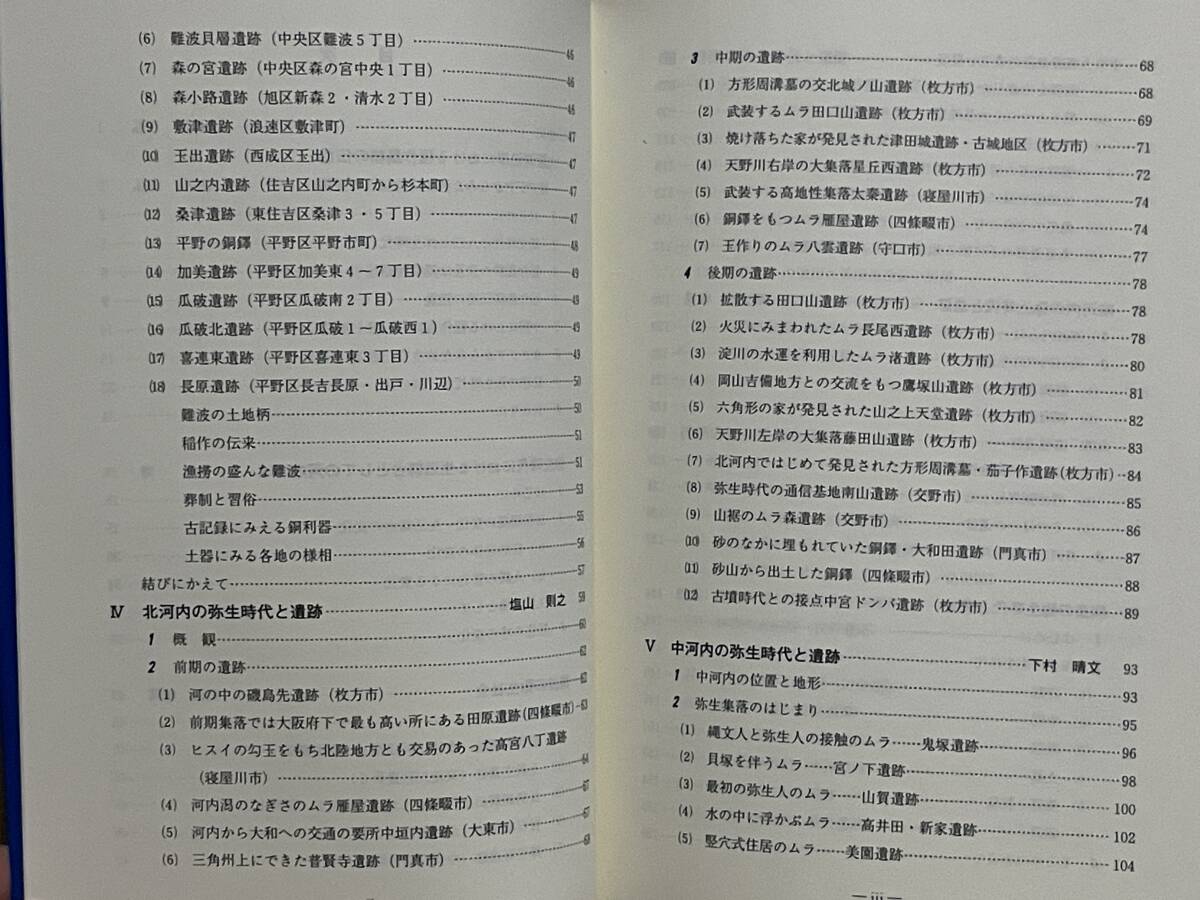 (6) 難波貝層遺跡（中央区難波5丁目）……46
(7) 森の宮遺跡（中央区森の宮中央1丁目）……46
(8) 森小路遺跡（旭区新森2・清水2丁目）……46
(9) 敷津遺跡（浪速区敷津町）……47
(10) 玉出遺跡（西成区玉出）……47
(11) 山之内遺跡（住吉区山之内町から杉本町）……47
(12) 桑津遺跡（東住吉区桑津3・5丁目）……47
(13) 平野の銅鐸（平野区平野市町）……48
(14) 加美遺跡（平野区加美東4～7丁目）……48
(15) 瓜破遺跡（平野区瓜破南2丁目）……48
(16) 瓜破北遺跡（平野区瓜破1～瓜破西1）……49
(17) 喜連東遺跡（平野区喜連東3丁目）……49
(18) 長原遺跡（平野区長吉長原・出戸・川辺）……50
難波の土地柄……50
稲作の伝来……51
漁撈の盛んな難波……51
葬制と習俗……53
古記録にみえる銅利器……55
土器にみる各地の様相……56
結びにかえて……57
Ⅳ 北河内の弥生時代と遺跡……塩山 則之 59
1 概 観……60
2 前期の遺跡……62
(1) 河の中の磯島先遺跡（枚方市）……62
(2) 前期集落では大阪府下で最も高い所にある田原遺跡(四條畷市)…63
(3) ヒスイの勾玉をもち北陸地方とも交易のあった高宮八丁遺跡
（寝屋川市）……64
(4) 河内潟のなぎさのムラ雁屋遺跡（四條畷市）……67
(5) 河内から大和への交通の要所中垣内遺跡（大東市）……67
(6) 三角州上にできた普賢寺遺跡（門真市）……68
3 中期の遺跡……68
(1) 方形周溝墓の交北城ノ山遺跡（枚方市）……68
(2) 武装するムラ田口山遺跡（枚方市）……69
(3) 焼け落ちた家が発見された津田城遺跡・古城地区（枚方市）……71
(4) 天野川右岸の大集落星丘西遺跡（枚方市）……72
(5) 武装する高地性集落太秦遺跡（寝屋川市）……74
(6) 銅鐸をもつムラ雁屋遺跡（四條畷市）……74
(7) 玉作りのムラ八雲遺跡（守口市）……77
4 後期の遺跡……78
(1) 拡散する田口山遺跡（枚方市）……78
(2) 火災にみまわれたムラ長尾西遺跡（枚方市）……78
(3) 淀川の水運を利用したムラ渚遺跡（枚方市）……80
(4) 岡山吉備地方との交流をもつ鷹塚山遺跡（枚方市）……81
(5) 六角形の家が発見された山之上天堂遺跡（枚方市）……82
(6) 天野川左岸の大集落藤田山遺跡（枚方市）……83
(7) 北河内ではじめて発見された方形周溝墓・茄子作遺跡(枚方市)…84
(8) 弥生時代の通信基地南山遺跡（交野市）……85
(9) 山裾のムラ森遺跡（交野市）……86
(10) 砂のなかに埋もれていた銅鐸・大和田遺跡（門真市）……87
(11) 砂山から出土した銅鐸（四條畷市）……88
(12) 古墳時代との接点中宮ドンバ遺跡（枚方市）……89
Ⅴ 中河内の弥生時代と遺跡……下村 晴文 93
1 中河内の位置と地形……93
2 弥生集落のはじまり……95
(1) 縄文人と弥生人の接触のムラ……鬼塚遺跡……96
(2) 貝塚を伴うムラ……宮ノ下遺跡……98
(3) 最初の弥生人のムラ……山賀遺跡……100
(4) 水の中に浮かぶムラ……高井田・新家遺跡……102
(5) 竪穴式住居のムラ……美園遺跡……104
— iii —